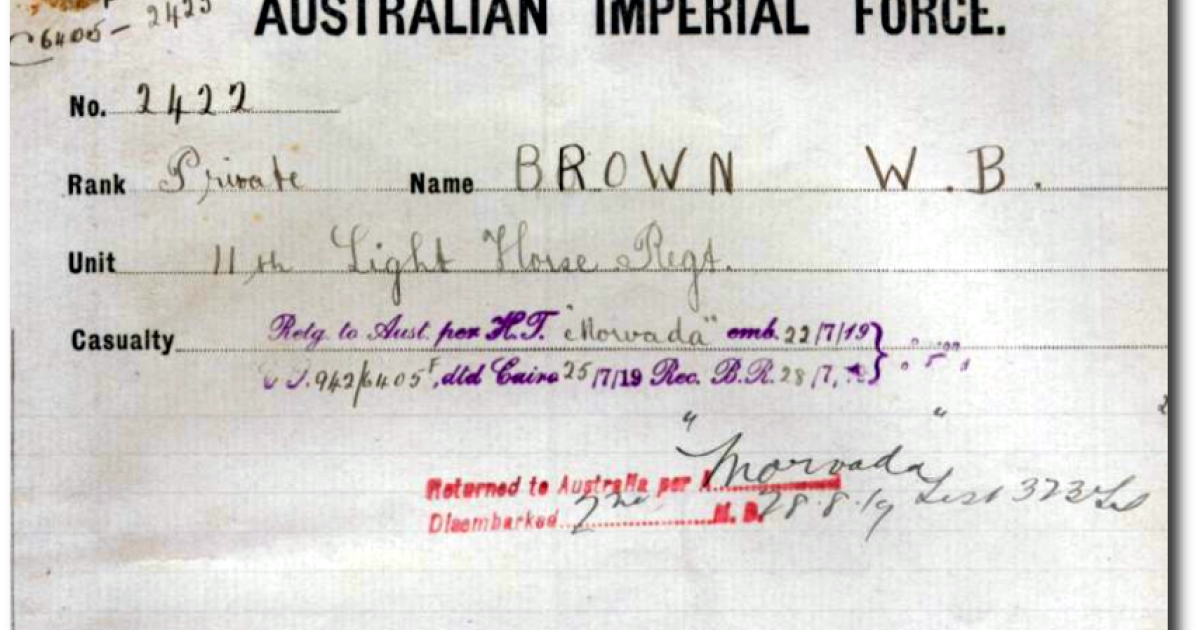 6405 - 2423
AUSTRALIAN IMPERIAL FORCE.
No. 2422
Rank Private Name BROWN W. B.
Unit 11th Light Horse Regt.
Casualty Retg. to Aust. per H.T. "Morvada" emb. 22/7/19}
942/6405, dtd Cairo 25/7/19 Rec. B.R. 28/7,
" "
Morvada
Returned to Australia per
Disembarked 2nd M. D. 28.8.19 List 323